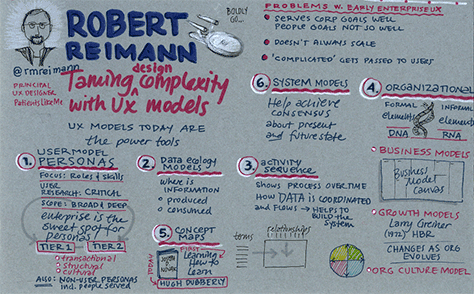 ROBERT
REIMANN
BOLDLY
GO...
@rmreimann
PRINCIPAL
UX DESIGNER
PatientsLikeMe
design
Taming complexity
with UX models
UX MODELS TODAY ARE
the power tools
PROBLEMS W. EARLY ENTERPRISE UX
SERVES CORP GOALS WELL
PEOPLE GOALS NOT SO WELL
DOESN'T ALWAYS SCALE
'COMPLICATED' GETS PASSED TO USERS
1. USER MODEL
PERSONAS
FOCUS: Roles & skills
USER
RESEARCH: CRITICAL
SCOPE: BROAD & DEEP
enterprise is the
sweet spot for
personas
TIER 1 TIER 2
transactional
structural
cultural
ALSO: NON-USER PERSONAS
incl. people served
2. DATA ecology
MODELS
where is
INFORMATION
produced
consumed
5. CONCEPT
MAPS
TODAY
FIRST
Learning
How to
Learn
JOSEPH
NOVAK
HUGH DUBBERLY
6. SYSTEM MODELS
Help achieve
consensus
about present
and future state
3. activity
sequence
SHOWS PROCESS OVER TIME
HOW DATA is COORDINATED
and FLOWS → HELPS TO
BUILD the
System
terms relationships
4. ORGANIZATIONAL
FORMAL
elements
DNA
INFORMAL
elements
RNA
BUSINESS MODELS
Business
Model
Canvas
GROWTH MODELS
Larry Greiner
(1972) HBR
CHANGES AS ORG
EVOLVES
ORG CULTURE MODEL